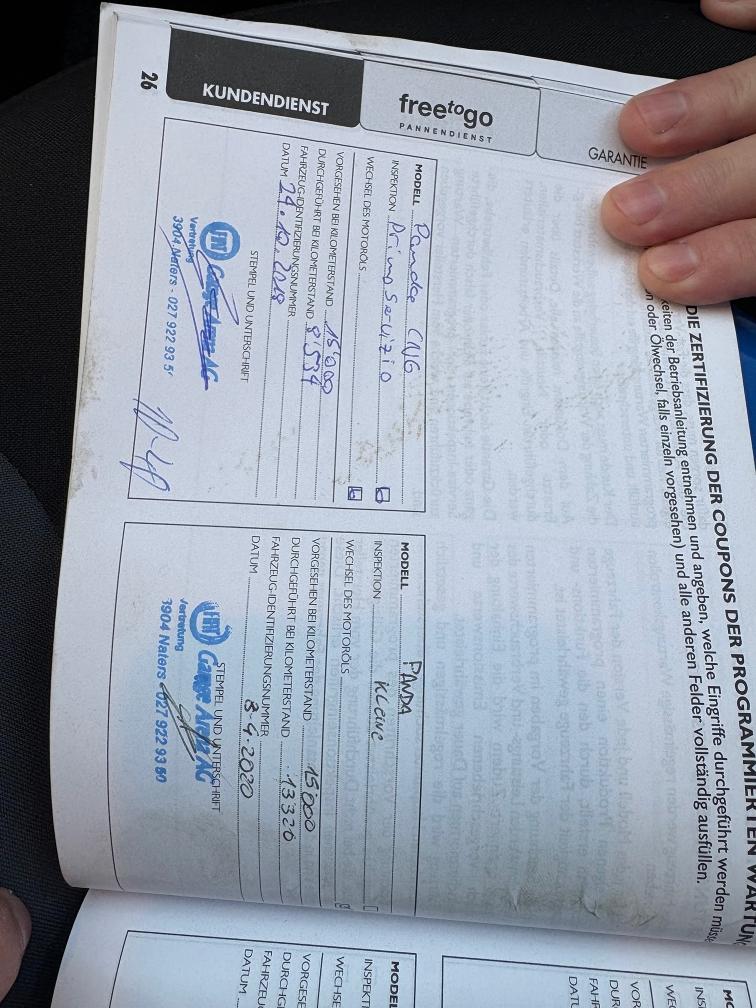 26
KUNDENDIENST
freetogo
PANNENDIENST
GARANTIE
DIE ZERTIFIZIERUNG DER COUPONS DER PROGRAMMIERTEN WARTUN
keiten der Betriebsanleitung entnehmen und angeben, welche Eingriffe durchgeführt werden müsse
n oder Ölwechsel, falls einzeln vorgesehen) und alle anderen Felder vollständig ausfüllen.
MODELL Panda CNG
INSPEKTION Primo Servizio
WECHSEL DES MOTORÖLS
VORGESEHEN BEI KILOMETERSTAND 15'000
DURCHGEFÜHRT BEI KILOMETERSTAND 8'534
FAHRZEUG-IDENTIFIZIERUNGSNUMMER
DATUM 24.10.2018
STEMPEL UND UNTERSCHRIFT
FIAT Garage Arena AG
Vertretung
3904 Naters - 027 922 93 5
MODELL PANDA
INSPEKTION KLEINE
WECHSEL DES MOTORÖLS
VORGESEHEN BEI KILOMETERSTAND 15'000
DURCHGEFÜHRT BEI KILOMETERSTAND 13320
FAHRZEUG-IDENTIFIZIERUNGSNUMMER
DATUM 3-4.2020
STEMPEL UND UNTERSCHRIFT
FIAT Garage Arena AG
Vertretung
3904 Naters 027 922 93 50
MODEL
INSPEKT
WECHSE
VORGESE
DURCHG
FAHRZEU
DATUM
MO
INS
WE
VOR
DUR
FAH
DATU